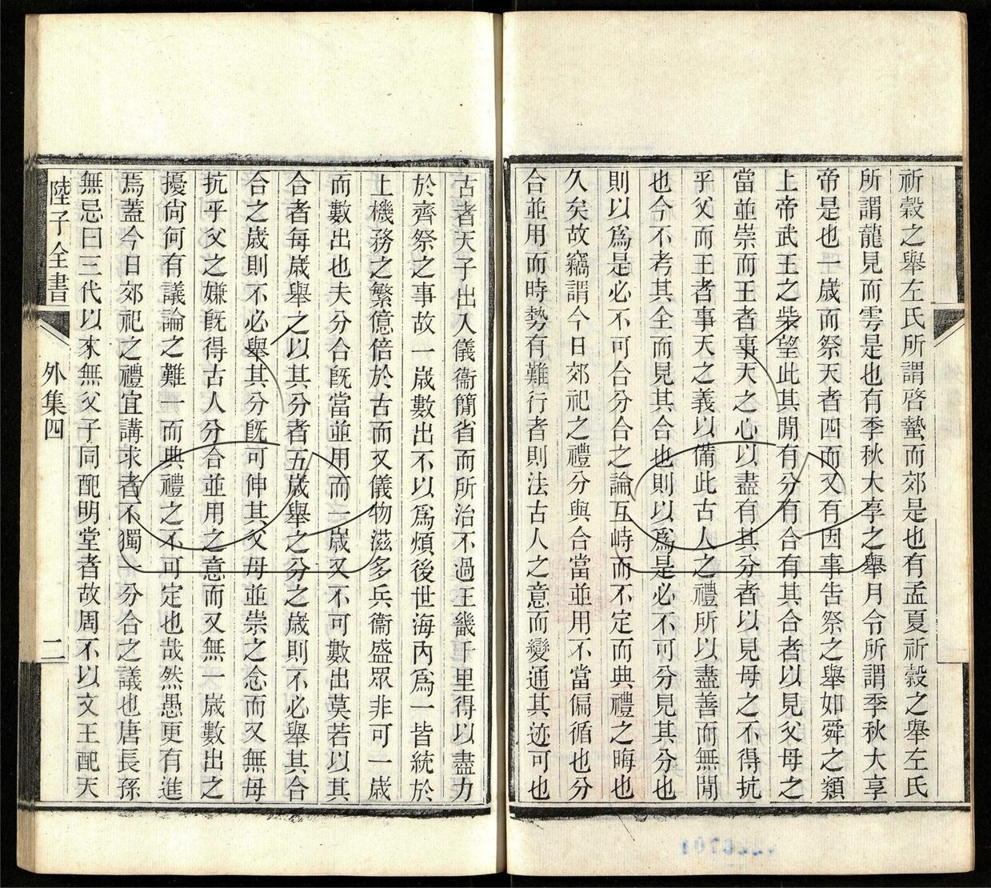 祈穀之舉左氏所謂啓蟄而郊是也有孟夏祈穀之舉左氏
所謂龍見而雩是也有季秋大享之舉月令所謂季秋大享
帝是也一歲而祭天者四而又有因事告祭之舉如舜之類
上帝武王之柴望此其閒有分有合有其合者以見父母之
當並崇而王者事天之心以盡有其分者以見母之不得抗
乎父而王者事天之義以備此古人之禮所以盡善而無閒
也今不考其全而見其合也則以爲是必不可分見其分也
則以爲是必不可合分合之論互峙而不定而典禮之晦也
久矣故竊謂今日郊祀之禮分與合當並用不當偏循也分
合並用而時勢有難行者則法古人之意而變通其迹可也
古者天子出入儀衞簡省而所治不過王畿千里得以盡力
於齊祭之事故一歲數出不以爲煩後世海內爲一皆統於
上機務之繁億倍於古而又儀物滋多兵衞盛眾非可一歲
而數出也夫分合旣當並用而一歲又不可數出莫若以其
合者每歲舉之以其分者五歲舉之分之歲則不必舉其合
合之歲則不必舉其分旣可伸其父母並崇之念而又無母
抗乎父之嫌旣得古人分合並用之意而又無一歲數出之
擾尙何有議論之難一而典禮之不可定也哉然愚更有進
焉蓋今日郊祀之禮宜講求者不獨一分合之議也唐長孫
無忌曰三代以來無父子同配明堂者故周不以文王配天
陸子全書
外集四
二